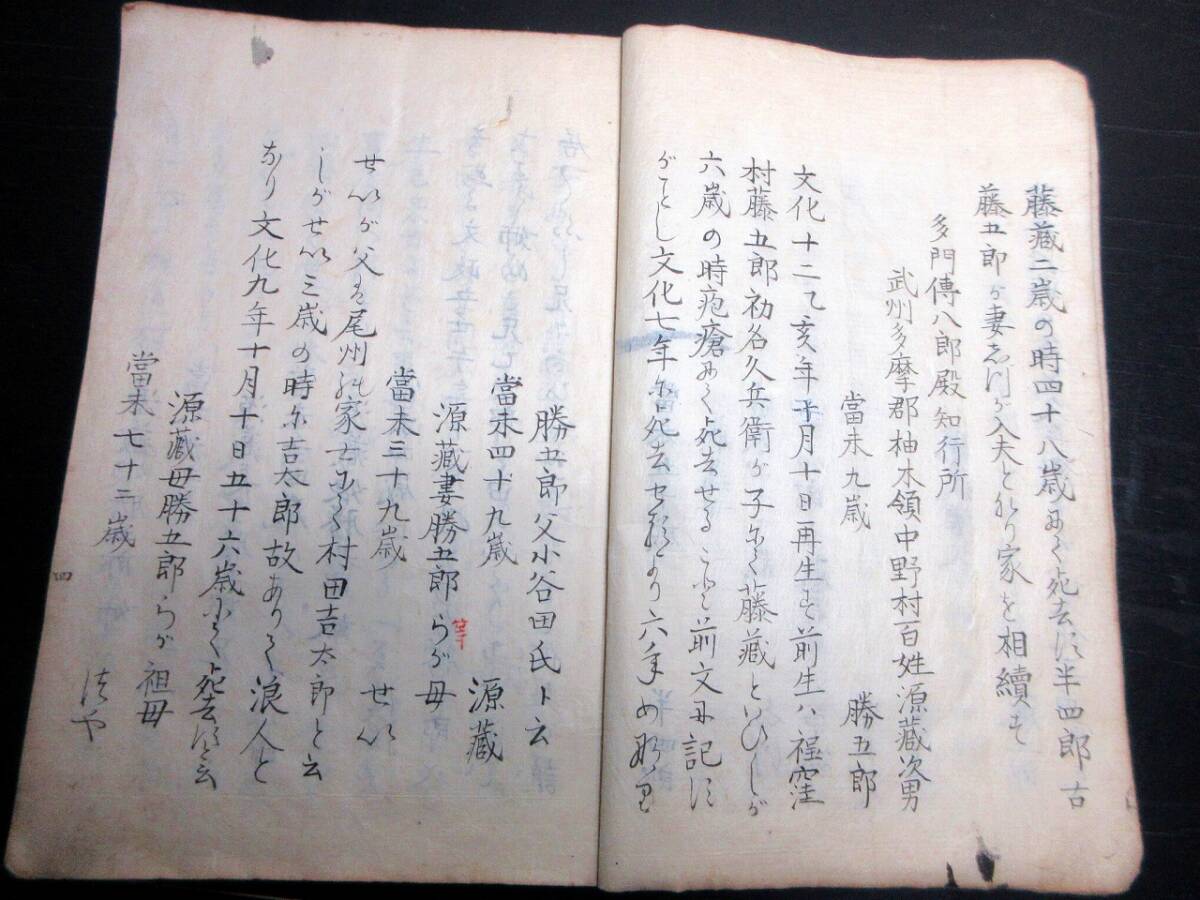 藤蔵二歳の時四十八歳にて死去す半四郎古
藤五郎が妻しづが入夫となり家を相續す
多門傳八郎殿知行所
武州多摩郡柚木領中野村百姓源蔵次男
當未九歳 勝五郎
文化十二乙亥年十月十日再生す前生ハ程窪
村藤五郎初名久兵衛が子にて藤蔵といひしが
六歳の時疱瘡にて死去せること前文に記す
がごとし文化七年に死去せしより六年め
勝五郎父小谷田氏ト云
當未四十九歳 源蔵
源蔵妻勝五郎らが母
等
當未三十九歳 せい
せいが父は尾州の家士にて村田吉太郎と云
しがせい三歳の時に吉太郎故ありて浪人と
なり文化九年十月十日五十六歳にて死去すと云
源蔵母勝五郎らが祖母
當未七十二歳 つや
四